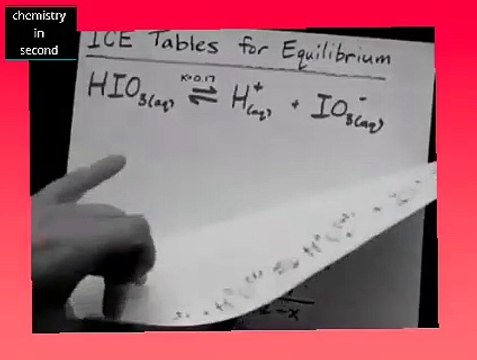 chemistry
in
second
ICE Tables for Equilibrium
K=0.17
HIO₃(aq) ⇌ H⁺(aq) + IO₃⁻(aq)
-x